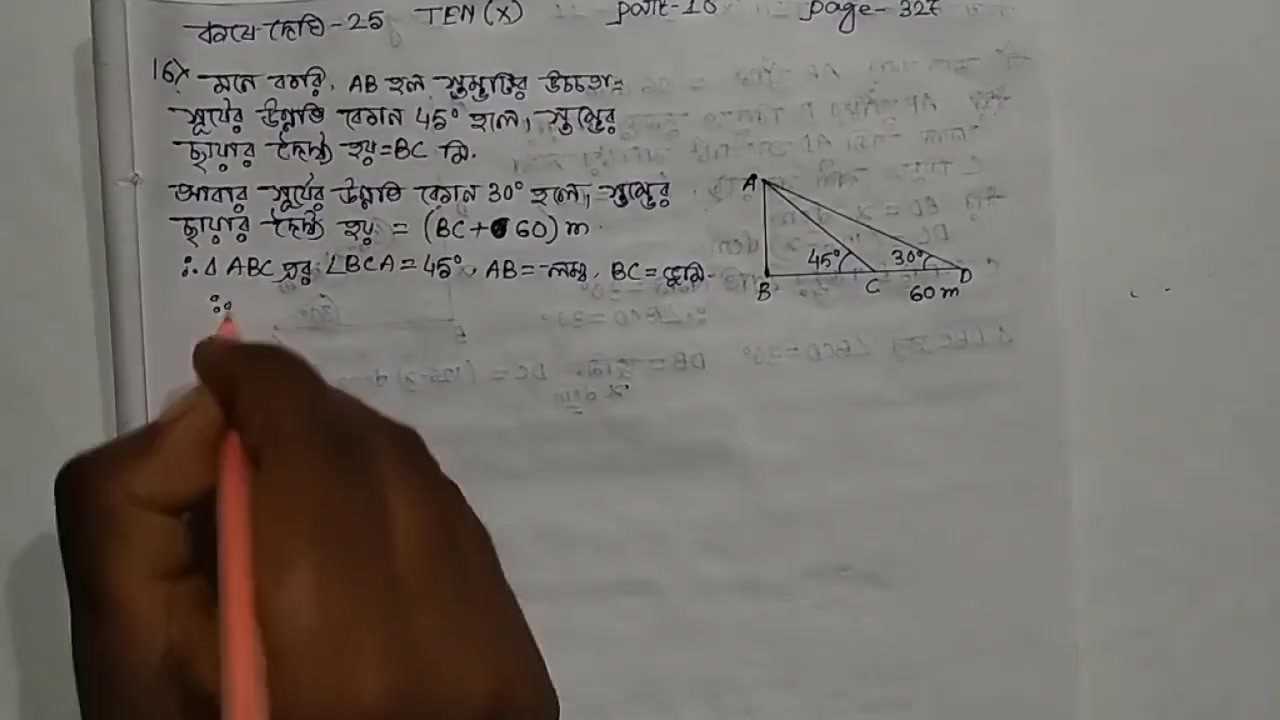 কষে দেখি-25 TEN (X) part-10 page- 327
16) মনে করি, AB হল স্তম্ভটির উচ্চতা।
সূর্যের উন্নতি কোণ 45° হলে, স্তম্ভের
ছায়ার দৈর্ঘ্য হয় = BC মি.
আবার সূর্যের উন্নতি কোণ 30° হলে, স্তম্ভের
ছায়ার দৈর্ঘ্য হয় = (BC+ 60) m
∴ Δ ABC এর ∠BCA = 45°, AB = লম্ব, BC = ভূমি
∴
A
45° 30°
B C D
60 m